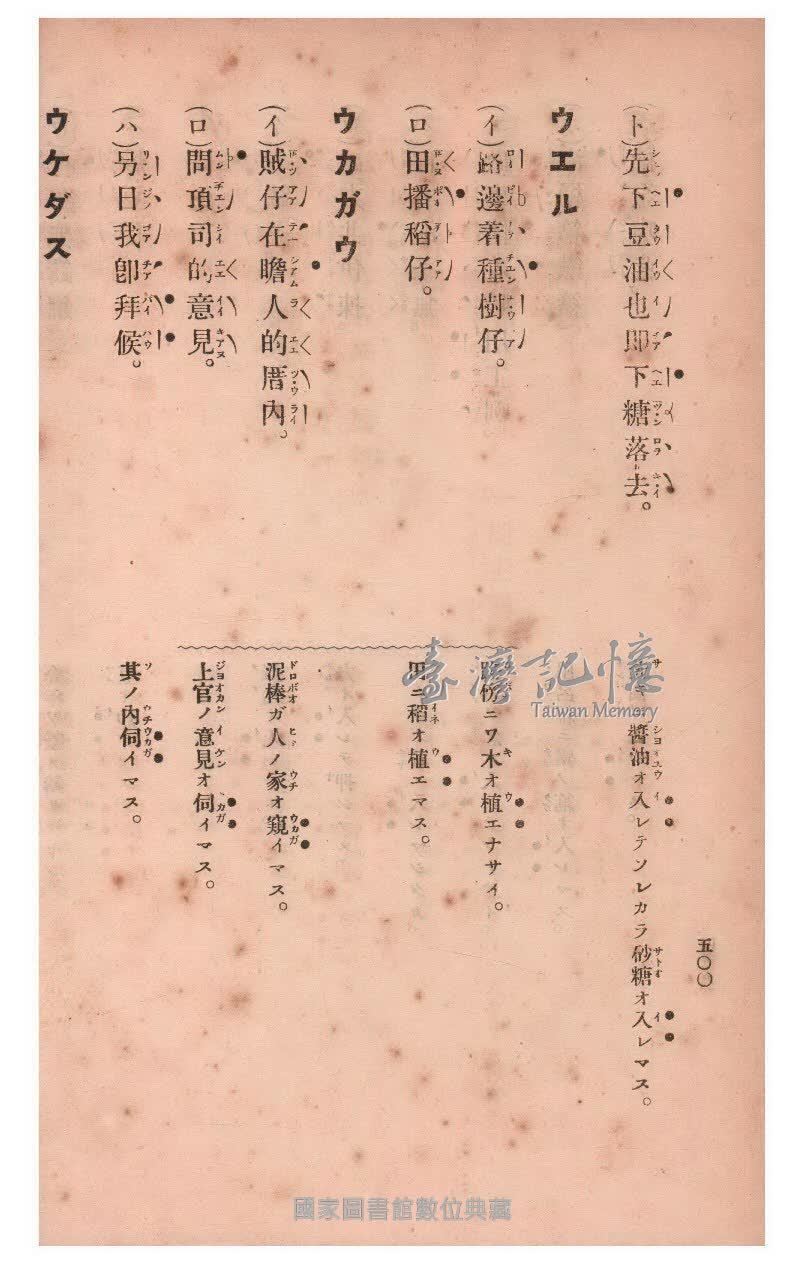 五〇〇
(ト)先下豆油也卽下糖落去。
醬油オ入レテソレカラ砂糖オ入レマス。
ウエル
(イ)路邊着種樹仔。
路傍ニワ木オ植エナサイ。
(ロ)田播稻仔。
田ニ稻オ植エマス。
ウカガウ
(イ)賊仔在瞻人的厝內。
泥棒ガ人ノ家オ窺イマス。
(ロ)問頂司的意見。
上官ノ意見オ伺イマス。
(ハ)另日我卽拜候。
其ノ內伺イマス。
ウケダス
臺灣記憶
Taiwan Memory
國家圖書館數位典藏